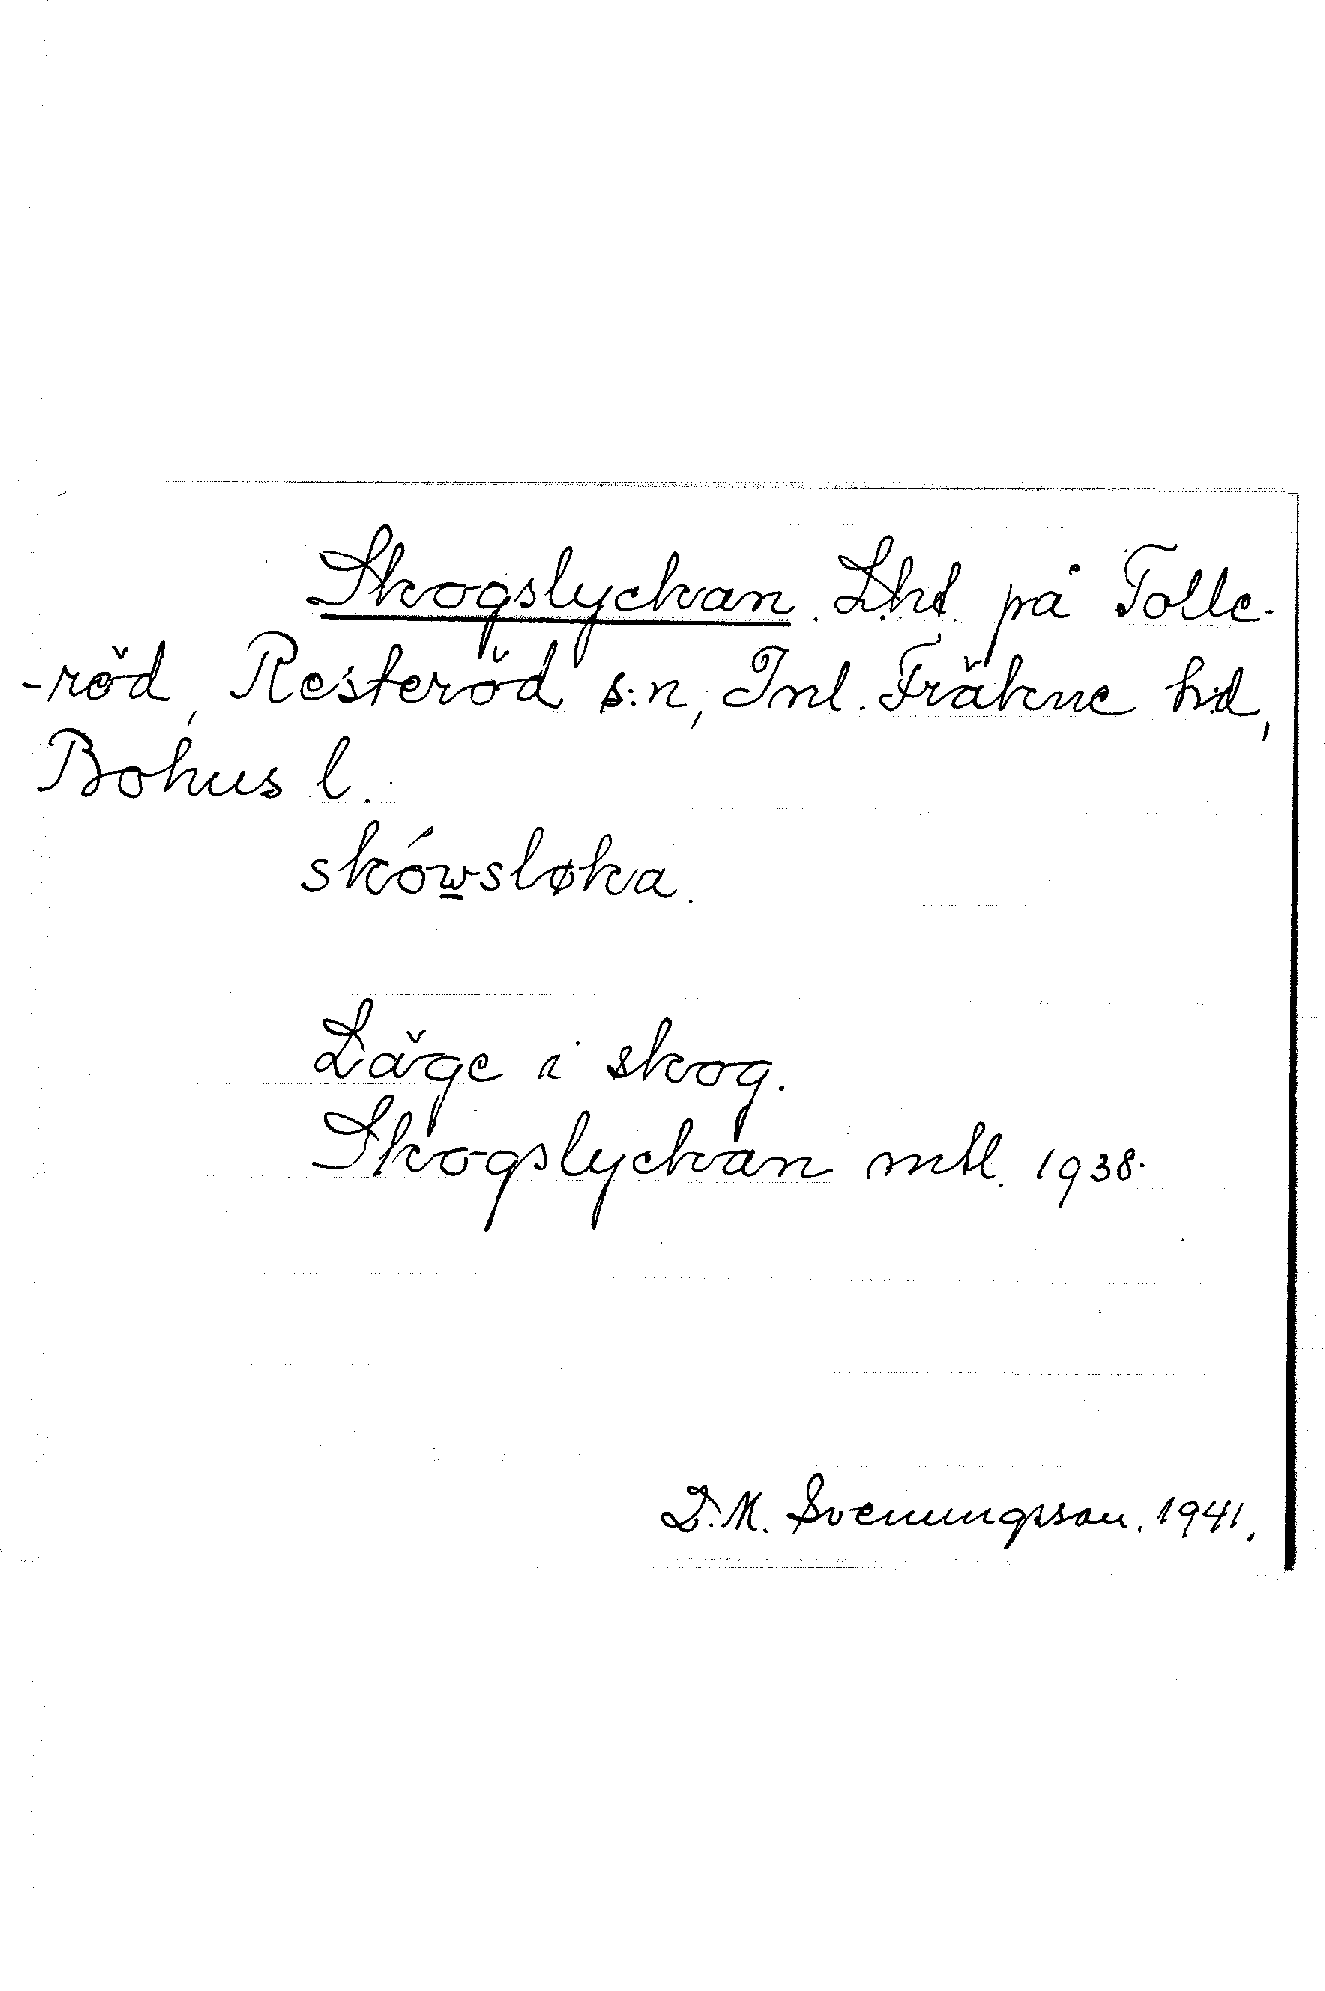 Skogslyckan. L.ht. på Tolle-
-röd, Resteröd s:n, Inl. Fräkne hd,
Bohus l.
skówsløka.
Läge i skog.
Skogslyckan mtl. 1938.
D. M. Svenungsson. 1941.